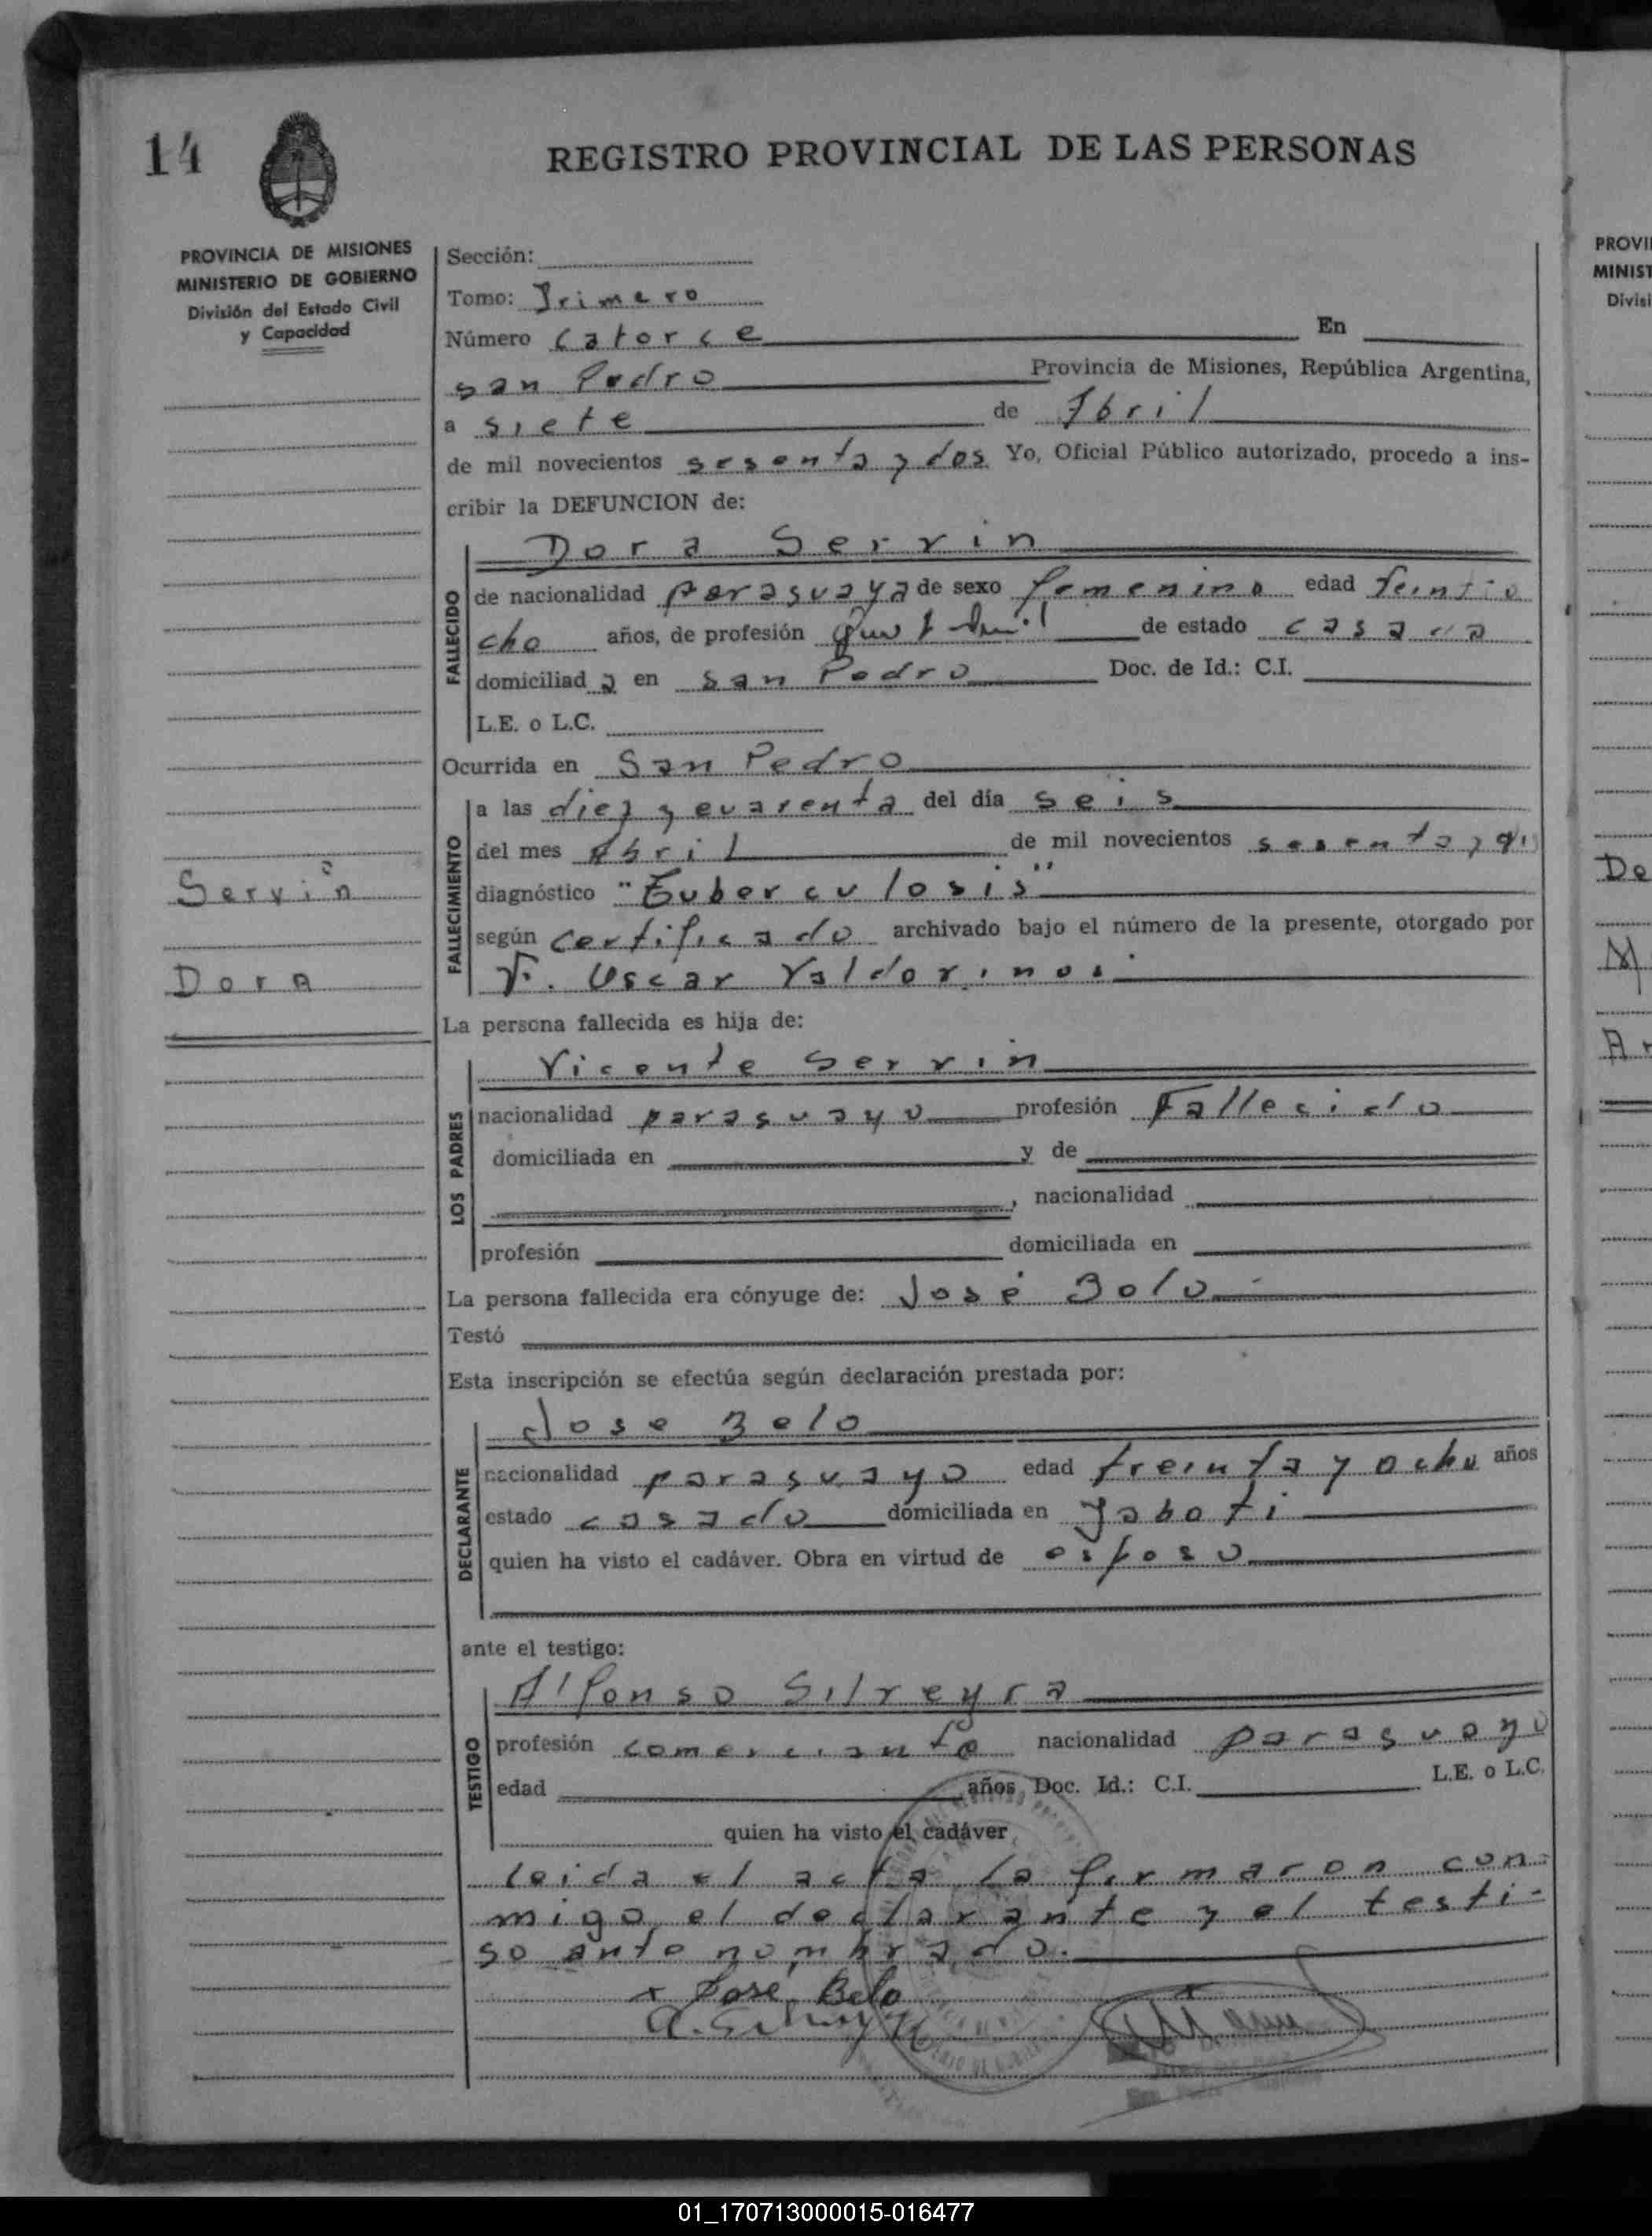 14
REGISTRO PROVINCIAL DE LAS PERSONAS
PROVINCIA DE MISIONES
MINISTERIO DE GOBIERNO
División del Estado Civil
y Capacidad
Servin
Dora
Sección:
Tomo: Primero
Número catorce En
San Pedro Provincia de Misiones, República Argentina,
a siete de Abril
de mil novecientos sesenta y dos Yo, Oficial Público autorizado, procedo a ins-
cribir la DEFUNCION de:
Dora Servin
FALLECIDO
de nacionalidad paraguaya de sexo femenino edad Veintio
cho años, de profesión de estado casada
domiciliad a en San Pedro Doc. de Id.: C.I.
L.E. o L.C.
Ocurrida en San Pedro
FALLECIMIENTO
a las diez y cuarenta del día seis
del mes Abril de mil novecientos sesenta y
diagnóstico "Tuberculosis"
según certificado archivado bajo el número de la presente, otorgado por
Oscar Valdorinos
La persona fallecida es hija de:
Vicente Servin
LOS PADRES
nacionalidad paraguayo profesión Fallecido
domiciliada en y de
, nacionalidad
profesión domiciliada en
La persona fallecida era cónyuge de: José Bolo
Testó
Esta inscripción se efectúa según declaración prestada por:
Jose Belo
DECLARANTE
nacionalidad paraguayo edad treinta y ocho años
estado casado domiciliada en Yaboti
quien ha visto el cadáver. Obra en virtud de esposo
ante el testigo:
Alfonso Silveyra
TESTIGO
profesión comerciante nacionalidad paraguayo
edad años, Doc. Id.: C.I. L.E. o L.C.
quien ha visto el cadáver
leida el acta la firmaron con-
migo el declarante y el testi-
go ante nombrado.
x José Belo
PROVI
MINIST
Divisi
De
01_170713000015-016477